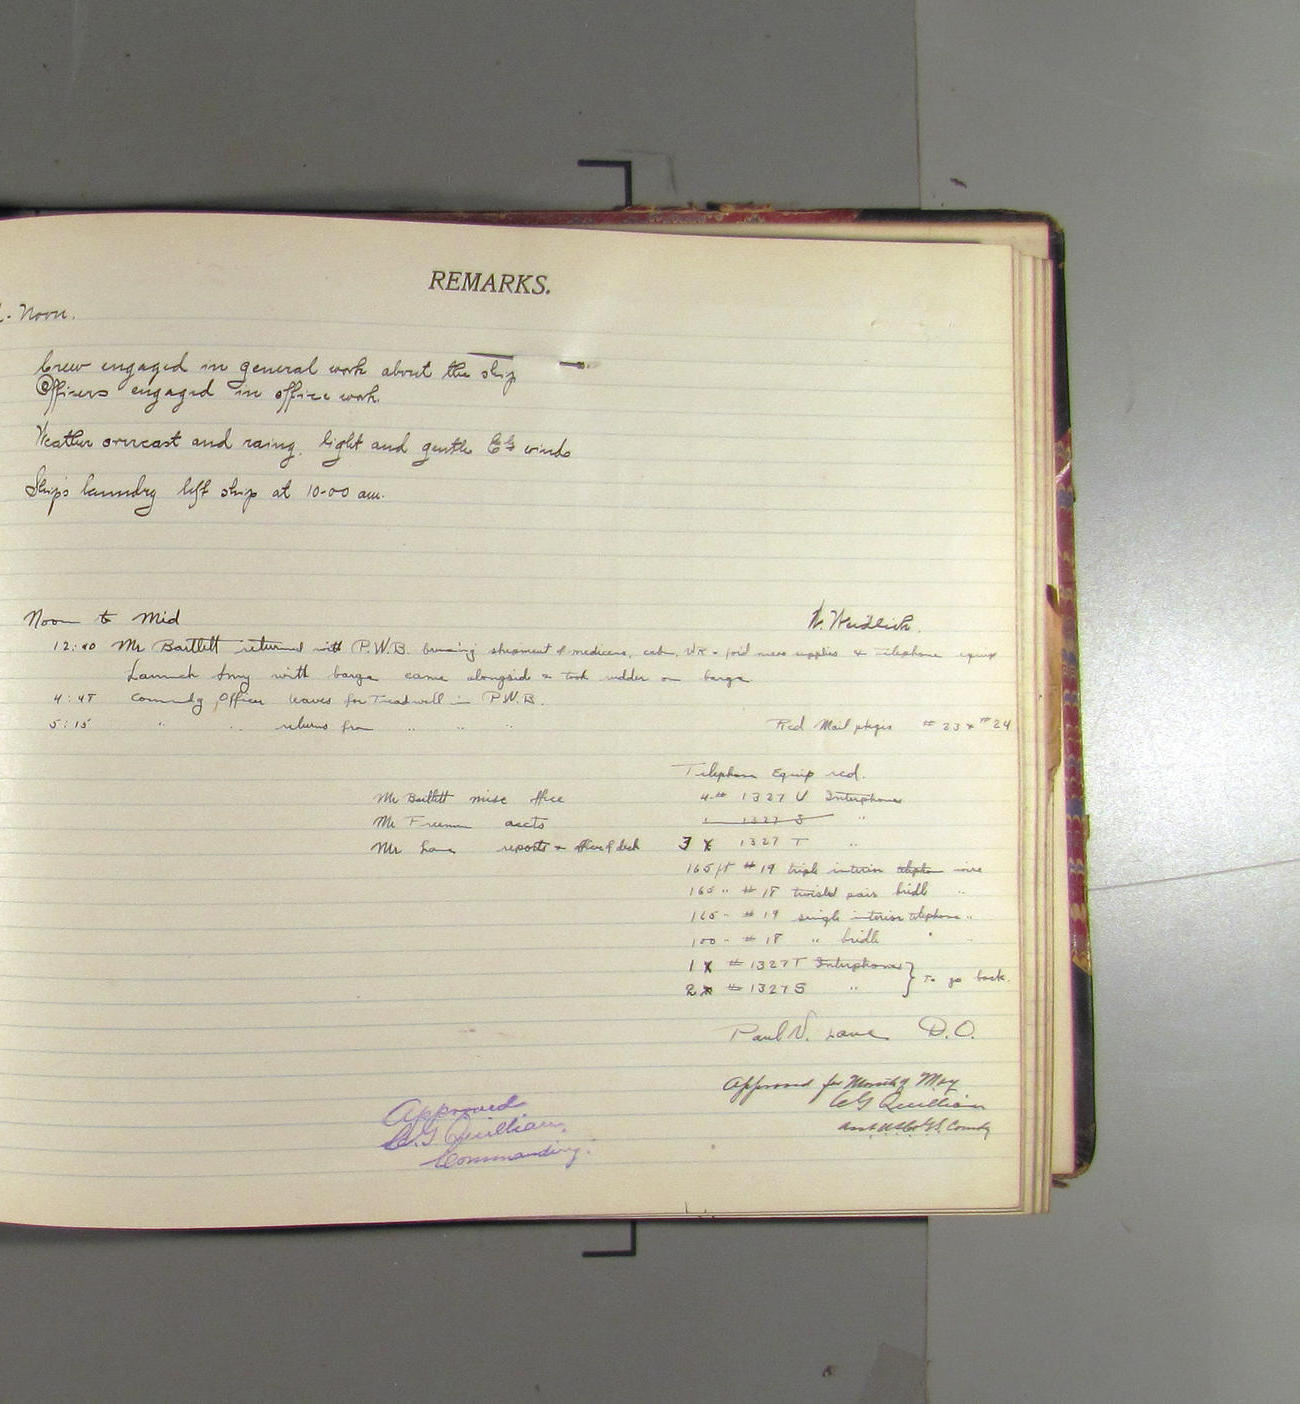 REMARKS.
- Noon.
Crew engaged in general work about the ship
Officers engaged in office work.
Weather overcast and raing, light and gentle winds
Ship's laundry left ship at 10-00 am.
Noon to Mid
12:40 Mr Bartlett returned with P.W.B. bringing shipment of medicine, mess supplies & Telephone equip
Launch with barge came alongside & took rudder on barge
4:45 Comandg Officer leaves for Treadwell in P.W.B.
5:15 " " returns from " "
Red Mail pkges # 23 & #24
Telephone Equip recd.
Mr Bartlett misc office 4 # 1327 U Interphones
Mr Freeman accts 1 1327 S "
Mr Lane reports & office & deck 3 x 1327 T "
165 ft #19 triple interior teleph wire
165 " #18 twisted pair bridle "
165 - #19 single interior telephone "
100 - #18 " bridle " "
1 x #1327T Interphones } To go back.
2 x #1327S "
Paul V. Lane D.O.
Approved for Month of May
C G Quillian
Approved
C.G. Quillian,
Commanding.